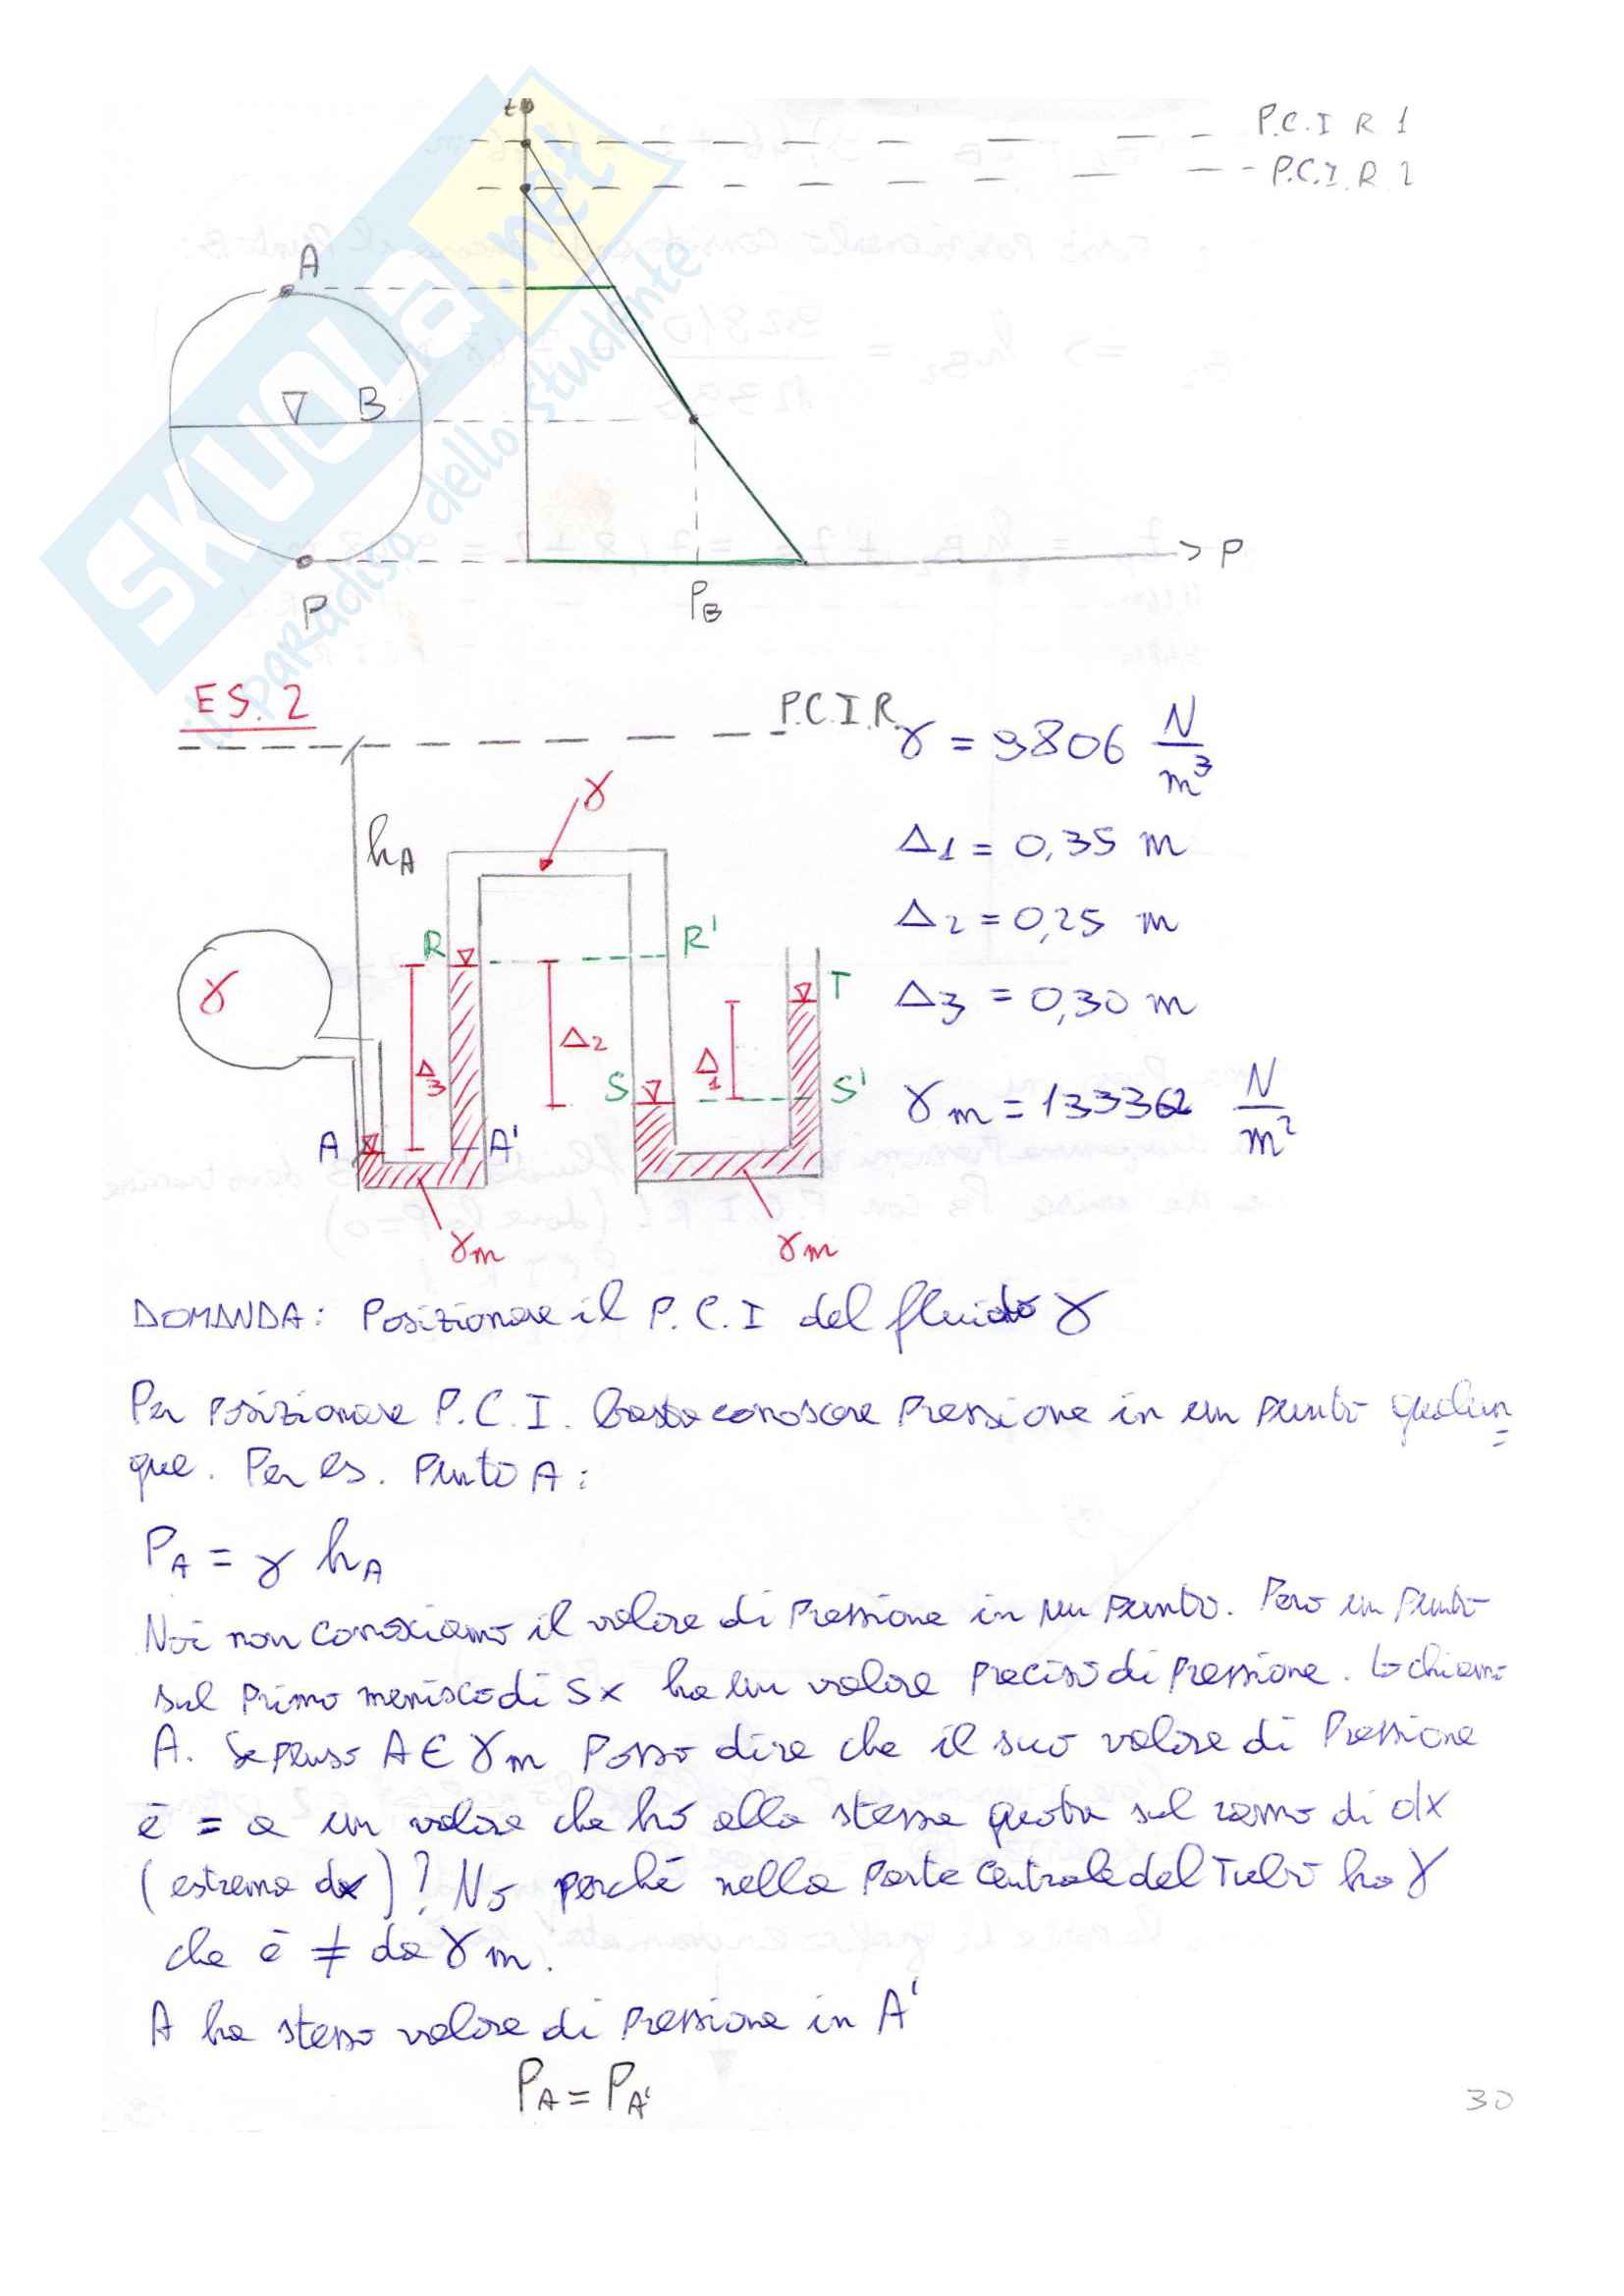 P.C.I R 1
P.C.I.R 2
A
B
P
P
PB
SKUOLA.net
il paradiso dello studente
ES. 2
P.C.I.R.
γ = 9806 N/m³
γ
hA
Δ1 = 0,35 m
Δ2 = 0,25 m
R
R'
γ
T
Δ3 = 0,30 m
Δ2
Δ3
Δ1
S
S'
γm = 133362 N/m²
A
A'
γm
γm
DOMANDA: Posizionare il P.C.I del fluido γ
Per posizionare P.C.I. basta conoscere pressione in un punto qualun
que. Per es. Punto A:
PA = γ hA
Noi non conosciamo il valore di Pressione in un punto. Però un punto
sul Primo menisco di sx ha un valore preciso di pressione. Lo chiamo
A. Se penso A ∈ γm Posso dire che il suo valore di Pressione
è = a un valore che ho alla stessa quota sul ramo di dx
(estrema dx)? No perchè nella Parte Centrale del Tubo ho γ
che è ≠ da γm.
A ha stesso valore di Pressione in A'
PA = PA'
30